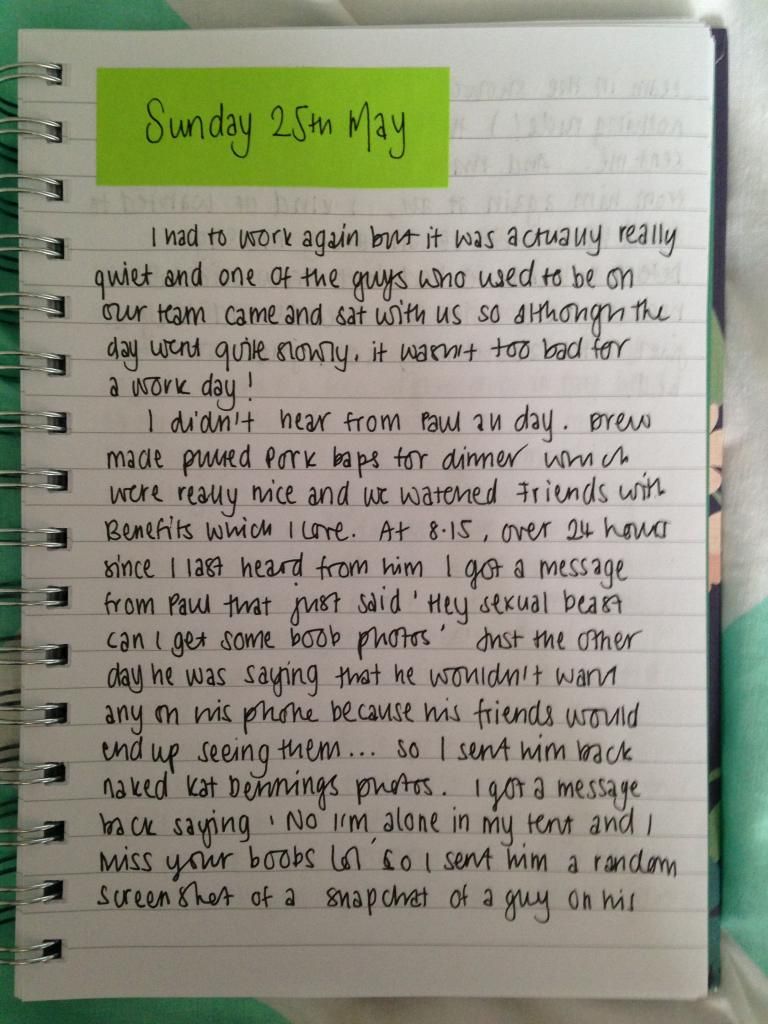 Sunday 25th May
I had to work again but it was actually really
quiet and one of the guys who used to be on
our team came and sat with us so although the
day went quite slowly, it wasn't too bad for
a work day!
I didn't hear from Paul all day. Drew
made pulled pork baps for dinner which
were really nice and we watched Friends with
Benefits which I love. At 8.15, over 24 hours
since I last heard from him I got a message
from Paul that just said 'Hey sexual beast
can I get some boob photos' Just the other
day he was saying that he wouldn't want
any on his phone because his friends would
end up seeing them... so I sent him back
naked Kat Dennings photos. I got a message
back saying 'No I'm alone in my tent and I
miss your boobs lol' so I sent him a random
screenshot of a snapchat of a guy on his